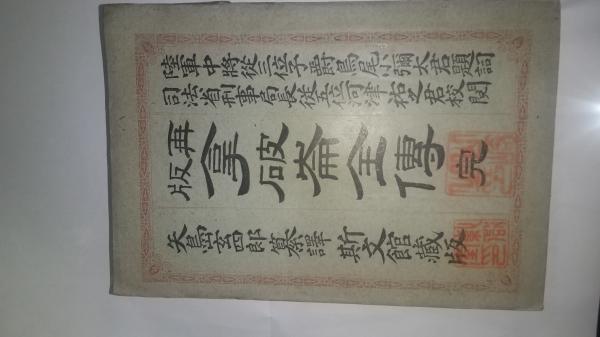 陸軍中將從三位子爵鳥尾小彌太君題詞
司法省刑事局長從五位河津祐之君校閲
再版 拿破崙全傳 完
矢島玄四郎纂譯 斯文館藏版